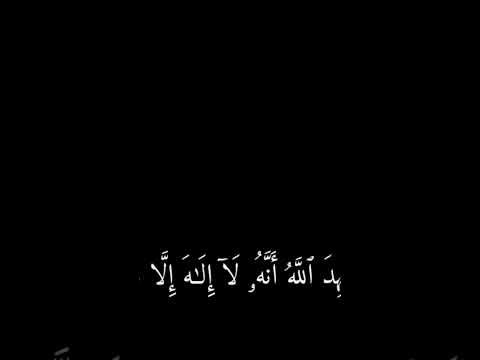 ـهِدَ ٱللَّهُ أَنَّهُۥ لَآ إِلَـٰهَ إِلَّا